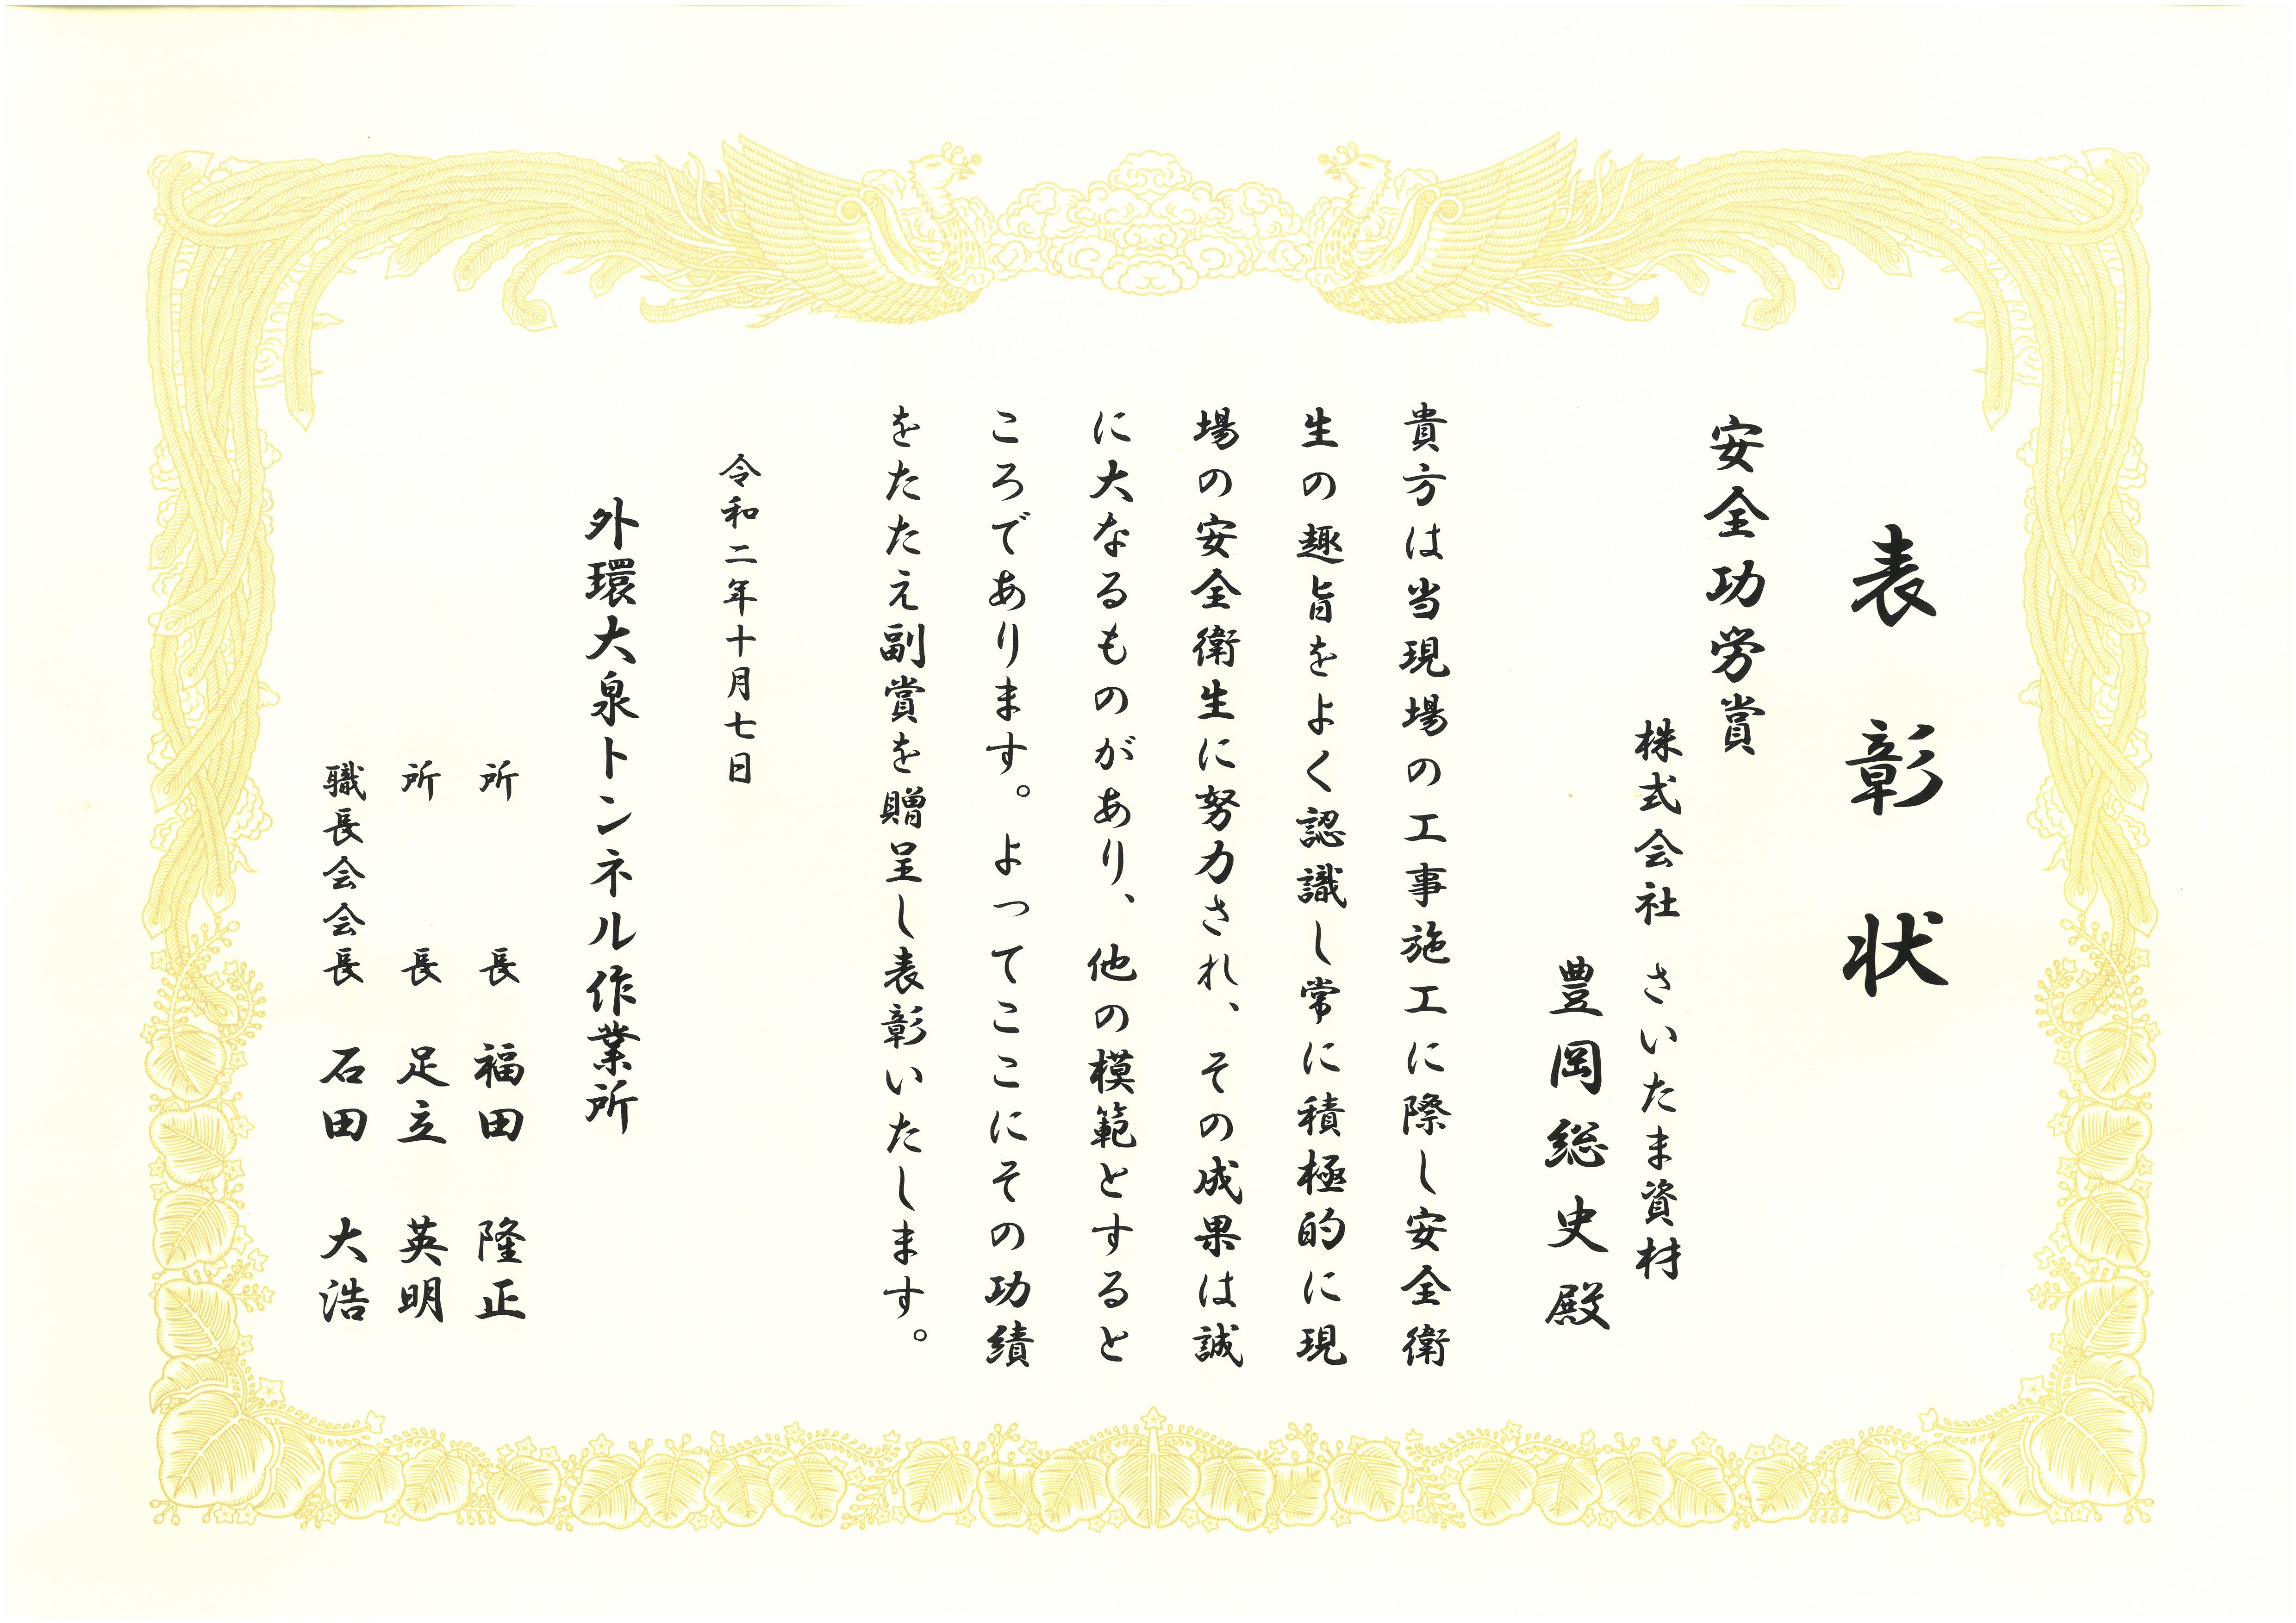 表彰状
安全功労賞
株式会社 さいたま資材
豊岡総史殿
貴方は当現場の工事施工に際し安全衛
生の趣旨をよく認識し常に積極的に現
場の安全衛生に努力され、その成果は誠
に大なるものがあり、他の模範とすると
ころであります。よってここにその功績
をたたえ副賞を贈呈し表彰いたします。
令和二年十月七日
外環大泉トンネル作業所
所長 福田 隆正
所長 足立 英明
職長会会長 石田 大浩